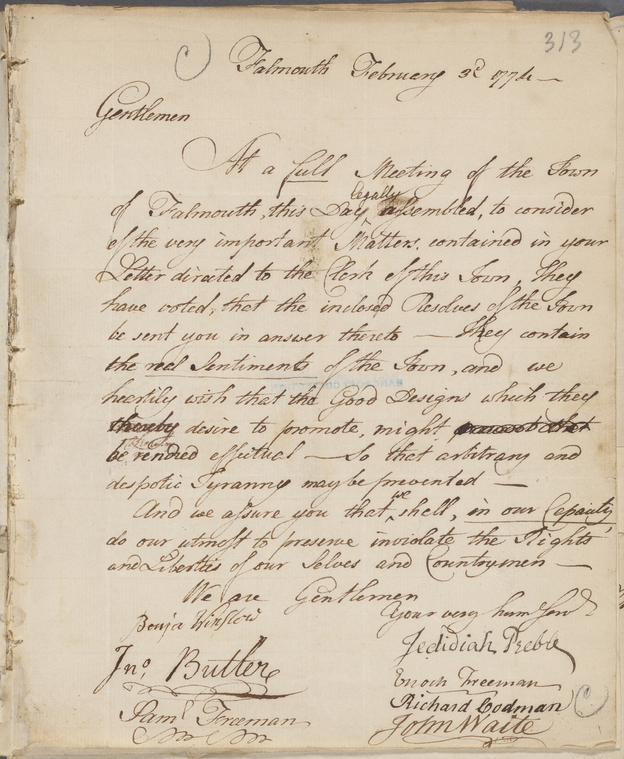 313
Falmouth February 3d 1774
Gentlemen
At a full Meeting of the Town
of Falmouth, this Day legally assembled, to consider
of the very important Matters, contained in your
Letter directed to the Clerk of this Town, They
have voted, that the inclosed Resolves of the Town
be sent you in answer thereto — They contain
the real Sentiments of the Town, and we
heartily wish that the Good Designs which they
thereby desire to promote, might
be rendred effectual — So that arbitrary and
despotic Tyranny may be prevented —
And we assure you that we shall, in our Capacity,
do our utmost to preserve inviolate the Rights
and Liberties of our Selves and Countrymen —
We are Gentlemen
Your very hum Servts
Benja Winslow
Jedidiah Preble
Jno. Butler
Enoch Freeman
Richard Codman
Saml Freeman
John Waite